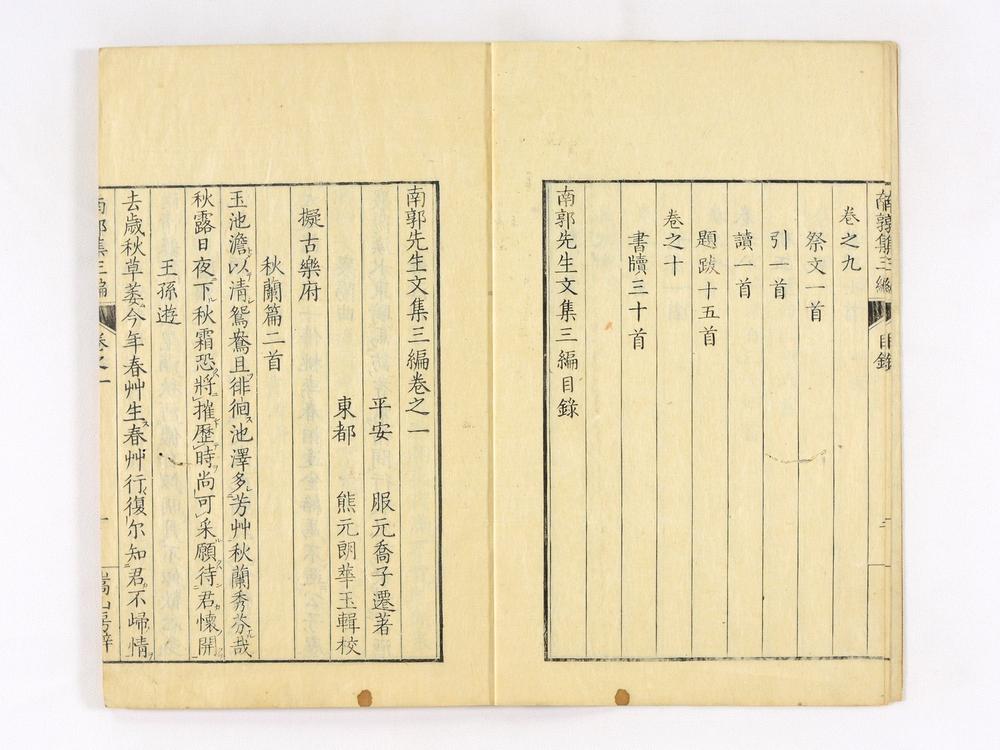 南郭集三編 目錄
卷之九
祭文一首
引一首
讀一首
題跋十五首
卷之十
書牘三十首
南郭先生文集三編目錄
南郭先生文集三編卷之一
平安 服元喬子遷著
東都 熊元朗華玉輯校
擬古樂府
秋蘭篇二首
玉池澹以清鴛鴦且徘徊池澤多芳艸秋蘭秀芬哉
秋露日夜下秋霜恐將摧歷時尚可采願待君懷開
王孫遊
去歲秋草萎今年春艸生春艸行復尓知君不歸情
南郭集三編 卷之一 一 嵩山房梓